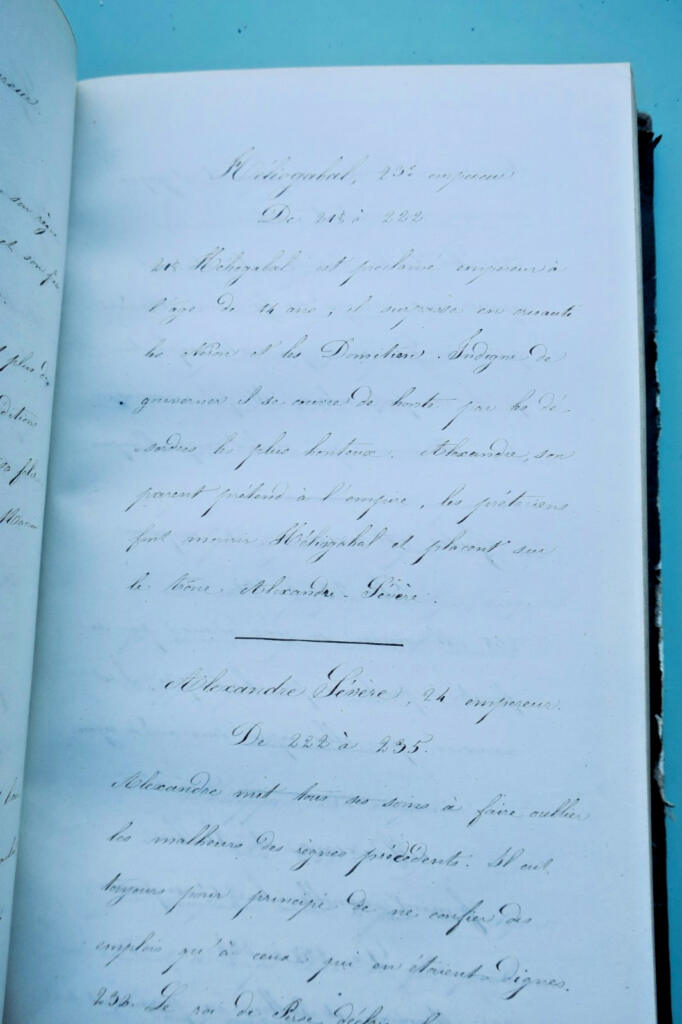 Héliogabal, 23e empereur
De 218 à 222
218 Héliogabal est proclamé empereur à
l'âge de 14 ans, il surpasse en cruauté
les Néron et les Domitien. Indigne de
gouverner il se couvre de honte par les dé-
sordres les plus honteux. Alexandre, son
parent prétend à l'empire, les prétoriens
font mourir Héliogabal et placent sur
le trône Alexandre-Sévère.
Alexandre Sévère, 24 empereur.
De 222 à 235.
Alexandre mit tous ses soins à faire oublier
les malheurs des règnes précédents. Il eut
toujours pour principe de ne confier des
emplois qu'à ceux qui en étaient dignes.
232. Le roi de Perse
son règne
et son
plus
fils